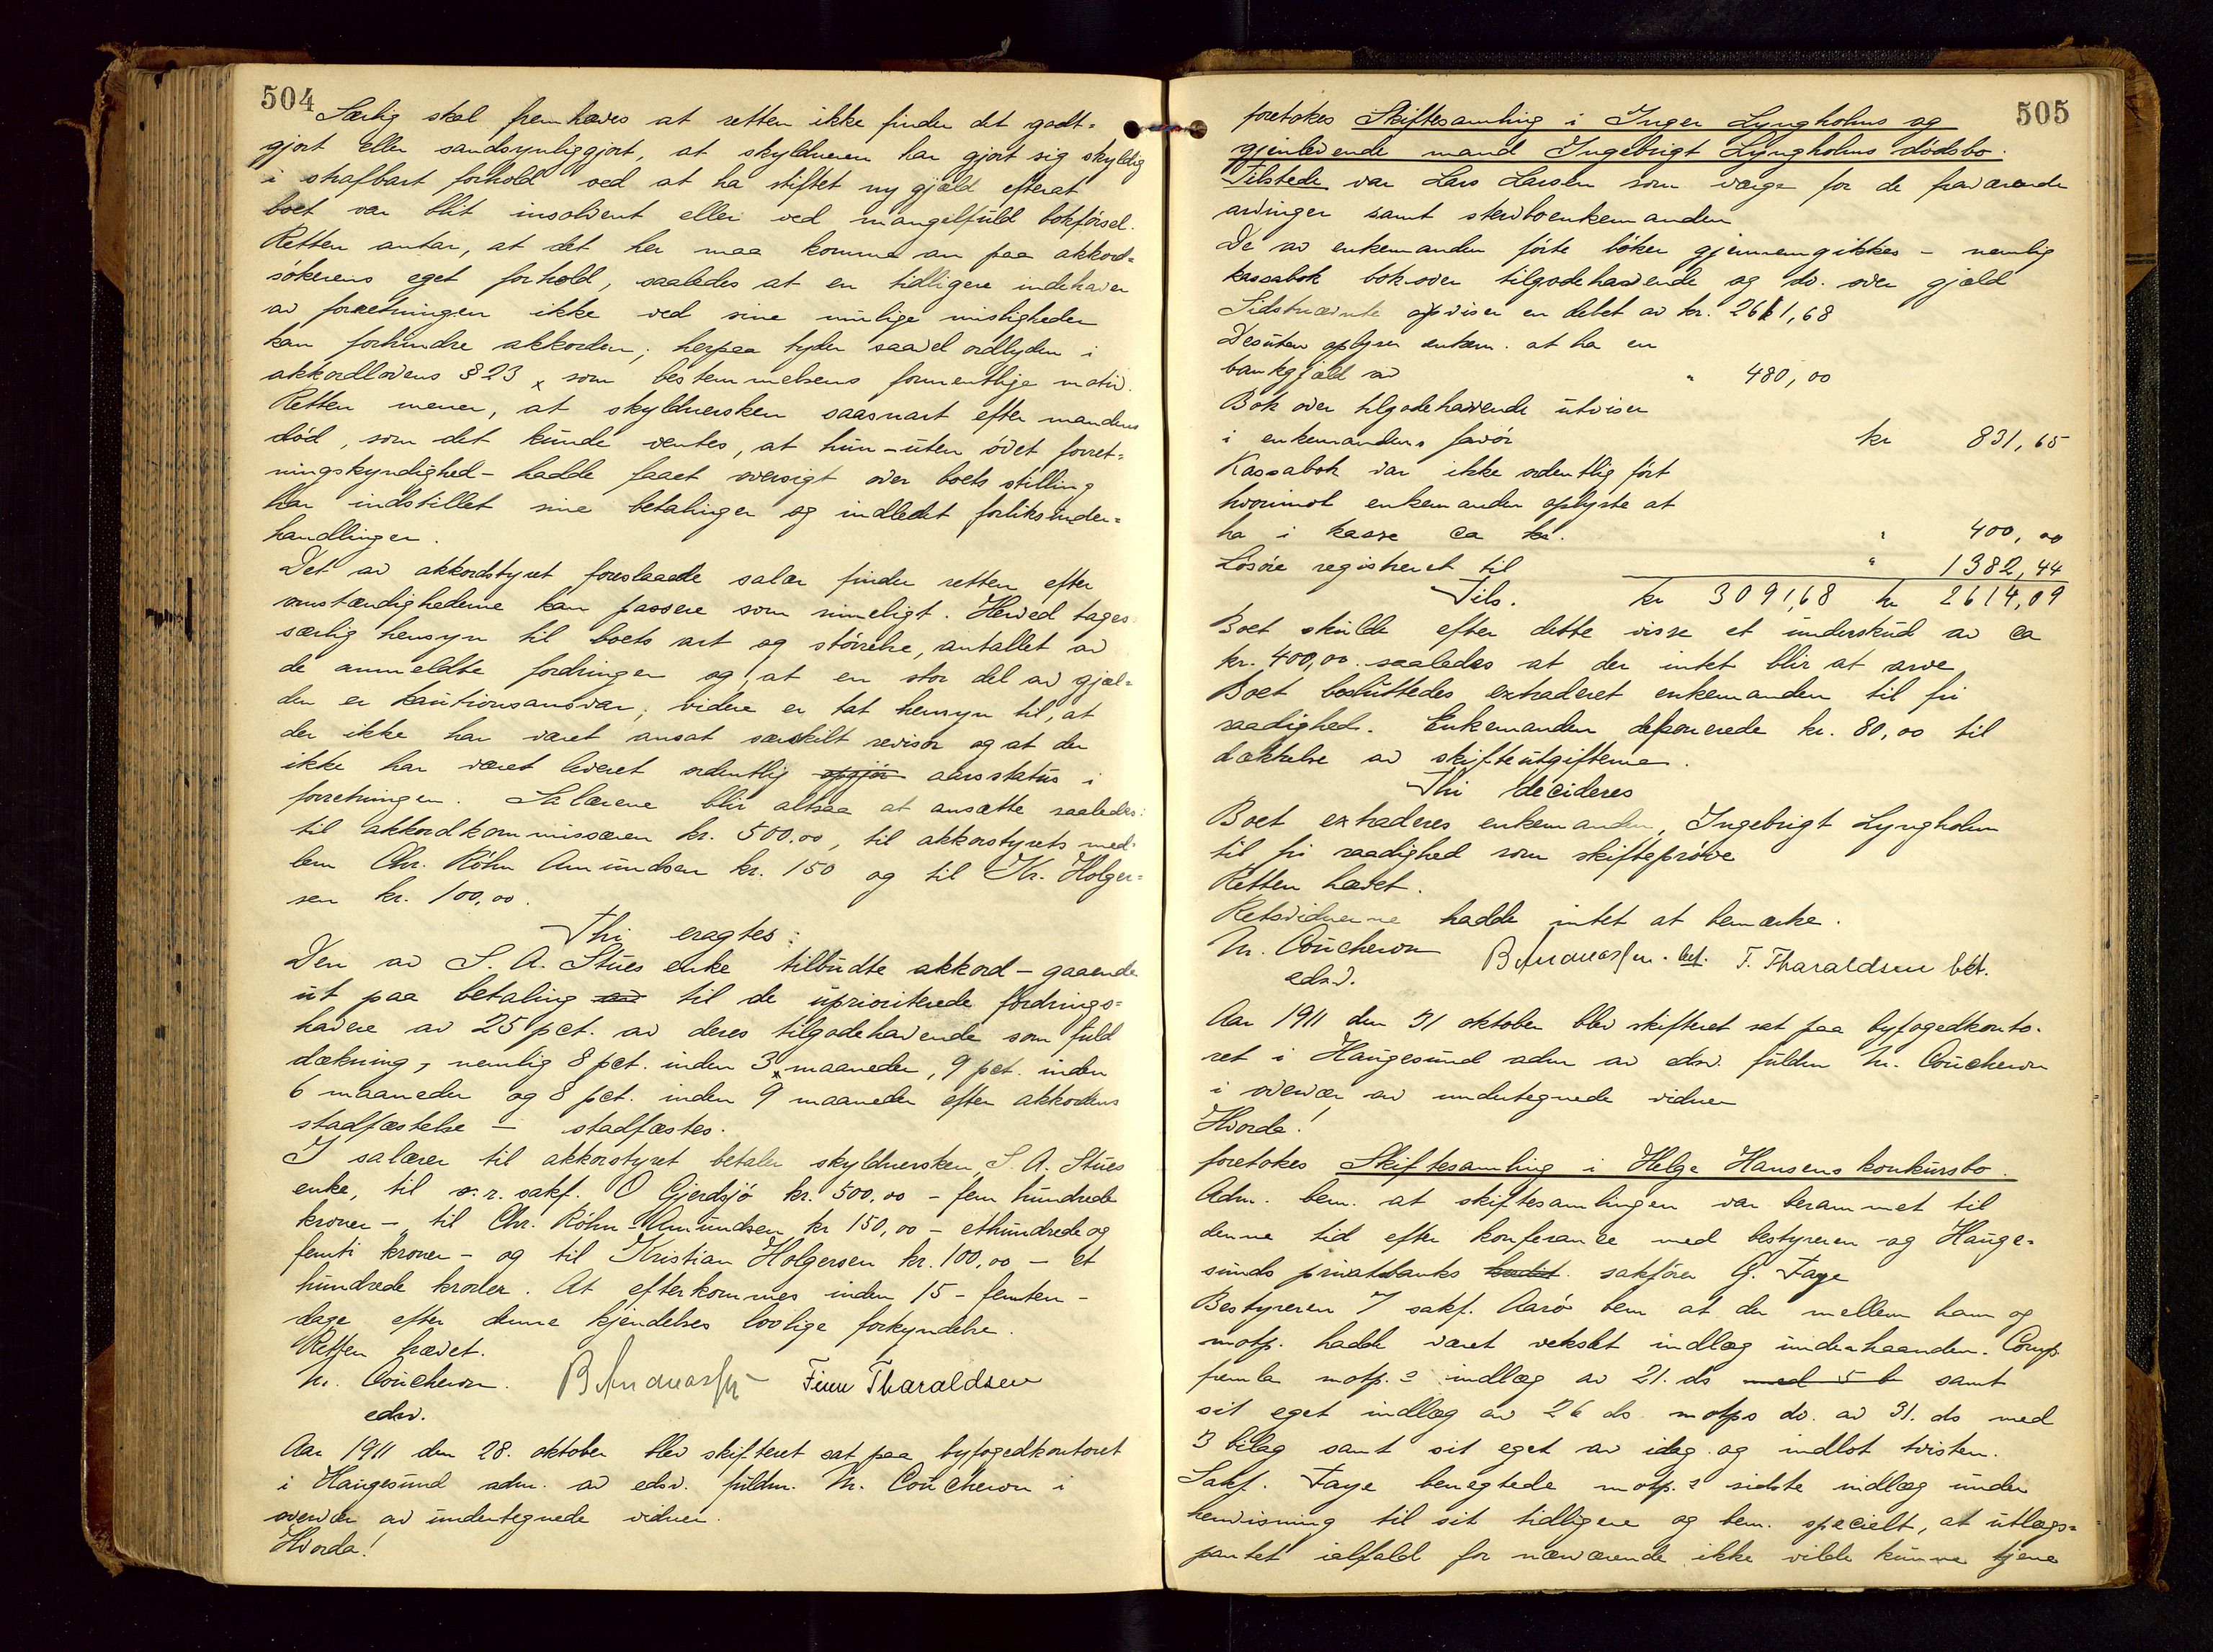 504
Særlig skal fremhæves at retten ikke finder det godt=
gjort eller sandsynliggjort, at skyldneren har gjort sig skyldig
i strafbart forhold ved at ha stiftet ny gjæld efterat
boet var blit insolvent eller ved mangelfuld bokførsel.
Retten antar, at det her maa komme an paa akkord=
søkerens eget forhold, saaledes at en tidligere indehaver
av forretningen ikke ved sine mulige misligheder
kan forhindre akkorden; herpaa tyder saavel ordlyden i
akkordlovens § 23 x som bestemmelsens formentlige motiv.
Retten mener, at skyldnersken saasnart efter mandens
død, som det kunde ventes, at hun – uten øvet forret=
ningskyndighed – hadde faaet oversigt over boets stilling
har indstillet sine betalinger og indledet forliksunder=
handlinger.
Det av akkordstyret foreslaaede salær finder retten efter
omstændighederne kan passere som rimeligt. Herved tages
særlig hensyn til boets art og størrelse, antallet av
de anmeldte fordringer og, at en stor del av gjæl=
den er kautionsansvar; videre er tat hensyn til, at
der ikke har været ansat særskilt revisor og at der
ikke har været leveret ordentlig opgjør aarsstatus i
forretningen. Salærene blir altsaa at ansætte saaledes:
til akkordkommissæren kr. 500,00, til akkorstyrets med=
lem Chr. Røhn Amundsen kr. 150 og til Kr. Holger=
sen kr. 100,00.
Thi eragtes:
Den av S. A. Stues enke tilbudte akkord – gaaende
ut paa betaling av til de uprioriterede fordrings=
havere av 25 pct. av deres tilgodehavende som fuld
dækning, nemlig 8 pct. inden 3 x maaneder, 9 pct. inden
6 maaneder og 8 pct. inden 9 maaneder efter akkordens
stadfæstelse – stadfæstes.
I salærer til akkorstyret betaler skyldnersken, S. A. Stues
enke, til o.r. sakf. O Gjerdsjø kr. 500,00 – fem hundrede
kroner – til Chr. Røhn-Amundsen kr 150,00 – ethundrede og
femti kroner – og til Kristian Holgersen kr. 100,00 – et
hundrede kroner. At efterkommes inden 15 – femten –
dage efter denne kjendelses lovlige forkyndelse.
Retten hævet.
M. Coucheron. B Andreassen Finn Tharaldsen
edsv.
Aar 1911 den 28. oktober blev skifteret sat paa byfogedkontoret
i Haugesund adm. av edsv. fuldm. M. Coucheron i
overvær av undertegnede vidner.
Hvorda!
505
foretokes Skiftesamling i Inger Lyngholms og
gjenlevende mand Ingebrigt Lyngholms dødsbo.
Tilstede var Lars Larsen som værge for de fraværende
arvinger samt stervboenkemanden
De av enkemanden førte bøker gjennemgikkes – nemlig
kassabok bok over tilgodehavende og do. over gjæld
Sidstnævnte opviser en debet av kr. 2611,68
Desuten oplyser enkem. at ha en
bankgjæld av " 480,00
Bok over tilgodehavende utviser
i enkemandens favør kr 831,65
Kassabok var ikke ordentlig ført
hvorimot enkemanden oplyste at
ha i kasse ca kr. " 400,00
Løsøre registreret til " 1382,44
Tils. kr 3091,68 kr 2614,09
Boet skulde efter dette visse et underskud av ca
kr. 400,00 saaledes at der intet blir at arve
Boet besluttedes extraderet enkemanden til fri
raadighed. Enkemanden deponerede kr. 80,00 til
dækkelse av skifteutgifterne.
Thi decideres
Boet extraderes enkemanden, Ingebrigt Lyngholm
til fri raadighed som skifteprøve
Retten hævet.
Retsvidnerne hadde intet at bemærke.
M. Coucheron B Andreassen. bet. F. Tharaldsen bet.
edsv.
Aar 1911 den 31 oktober blev skifteret sat paa byfogedkonto=
ret i Haugesund adm av edsv. fuldm M. Coucheron
i overvær av undertegnede vidner
Hvorda!
foretokes Skiftesamling i Helge Hansens konkursbo.
Adm. bem. at skiftesamlingen var berammet til
denne tid efter konferanse med bestyreren og Hauge=
sunds privatbanks sakfører G. Faye
Bestyreren 7 sakf. Aarø bem at der mellem ham og
motp. hadde været vekslet indlæg underhaanden. Comp.
fremla motp.s indlæg av 21. ds med 5 b samt
sit eget indlæg av 26 ds. motps do. av 31. ds med
3 bilag samt sit eget av idag og indlot tvisten.
Sakf. Faye benegtede motp.s sidste indlæg under
henvisning til sit tidligere og bem. specielt, at utlægs=
pantet ialfald for nærværende ikke vilde kunne tjene